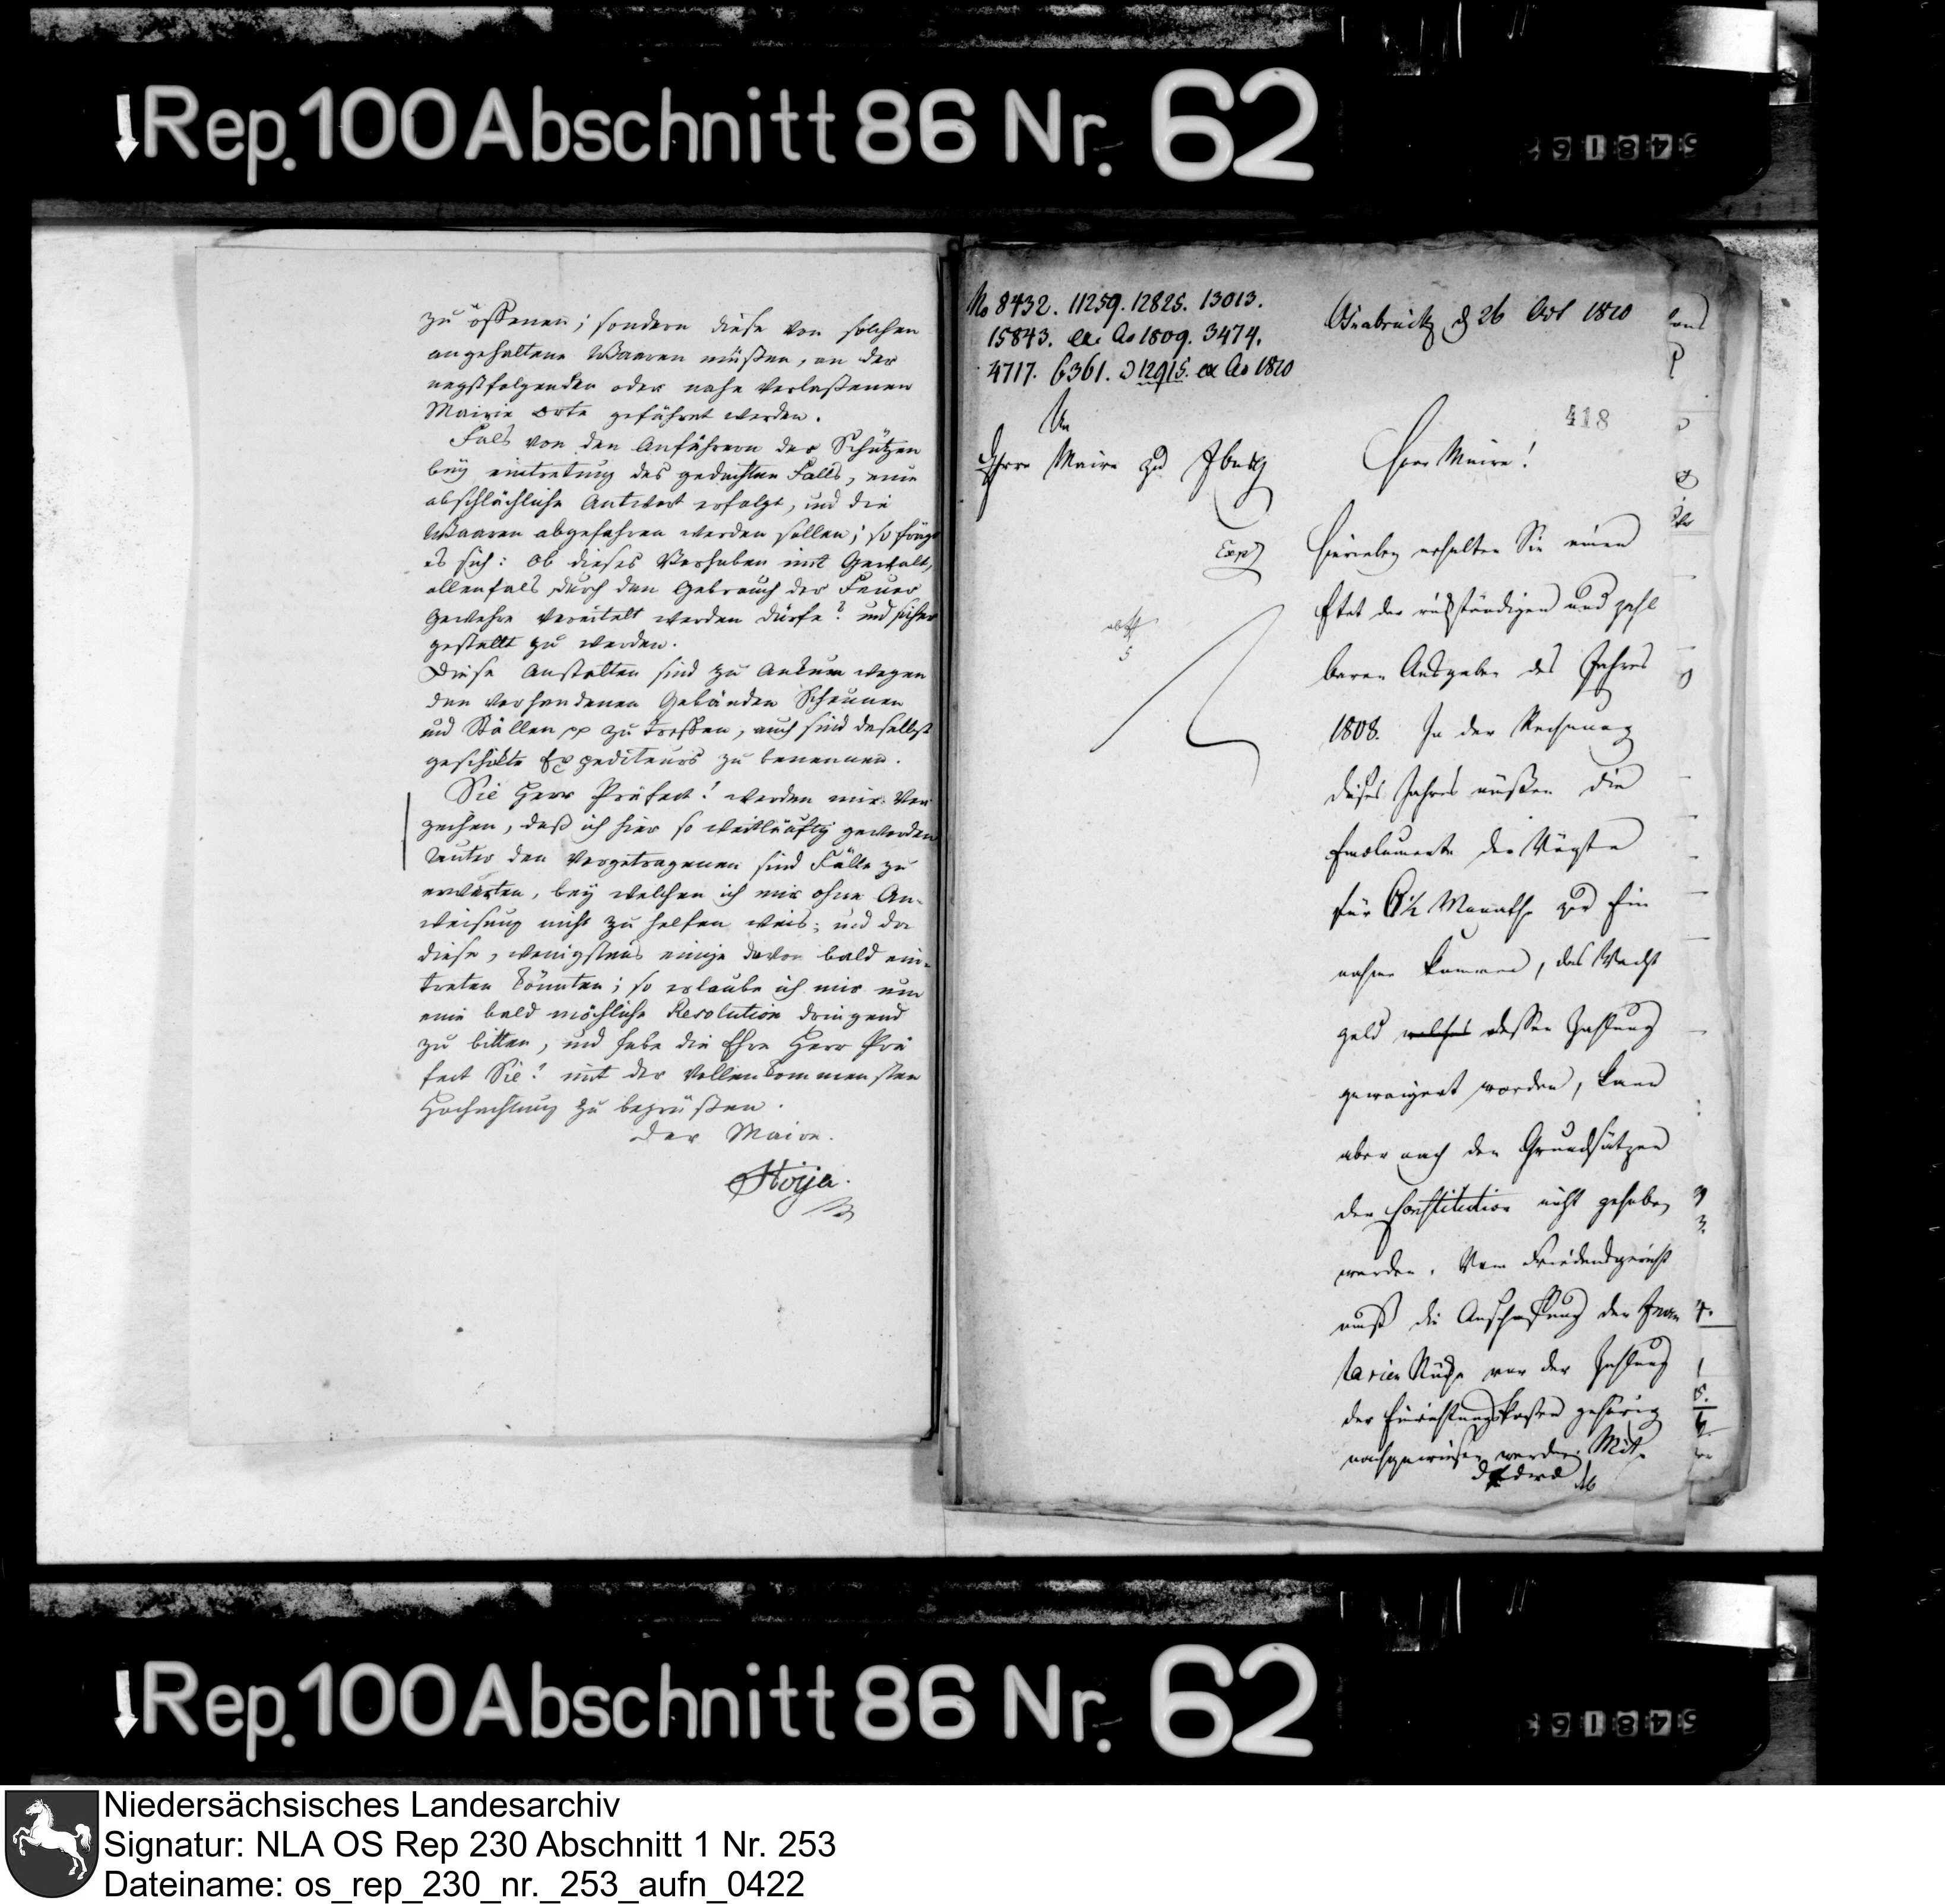 Rep. 100 Abschnitt 86 Nr. 62
zu öffenen; sondern diese von solchen
angehaltene Waaren müßen, an der
negstfolgenden oder nahe verlaßenen
Mairie orte geführet werden.
Fals von den Anführern der Schützen
bey eintretung des gedachten Falls, eine
abschlächliche Antwort erfolgt, und die
Waaren abgefahren werden sollen; so frägt
es sich: Ob dieses Vorhaben mit Gewalt,
allenfals durch den Gebrauch der Feuer
Gewehre vereitelt werden dürfe? und sicher
gestellt zu werden.
Diese Anstalten sind zu Ankum wegen
den vorhandenen Gebäuden Scheunen
und Ställen pp zu treffen, auch sind deselbst
geschikte Expediteurs zu benennen.
Sie Herr Präfect! werden mir ver
zeihen, daß ich hier so weitläuftig geworden
unter den Vorgetragenen sind Fälle zu
erwarten, bey welchen ich mir ohne An-
weisung nicht zu helfen weis; und da
diese, wenigstens einige davon bald ein-
treten könnten; so erlaube ich mir um
eine bald möchliche Resolution dringend
zu bitten, und habe die Ehre Herr Prä
fect Sie! mit der vollenkommensten
Hochachtung zu begrüßen.
Der Maire.
Stoija.
No 8432. 11259. 12825. 13013.
15843. ex Ao 1809. 3474.
4717. 6361. 12915. ex Ao 1810
An
Herrn Maire zu Iburg
Exp
Osnabrück d 26 Oct 1810
418
Herr Maire!
Hierneben erhalten Sie einen
Etat der rückständigen und zahl
baren Ausgaben des Jahres
1808. In der Rechnung
dieses Jahres müßen die
Emolumente der Vögte
für 6½ Monath zur Ein
nahme kommen, das Wacht
geld welches dessen Zahlung
geweigert worden, kann
aber nach den Grundsätzen
der Constitution nicht gehoben
werden. Vom Friedensgericht
muß die Anschaffung der Inven
tarien Stücke vor der Zahlung
der Einrichtungskosten gehörig
nachgewiesen werden. Mit
Rep. 100 Abschnitt 86 Nr. 62
Niedersächsisches Landesarchiv
Signatur: NLA OS Rep 230 Abschnitt 1 Nr. 253
Dateiname: os_rep_230_nr._253_aufn_0422